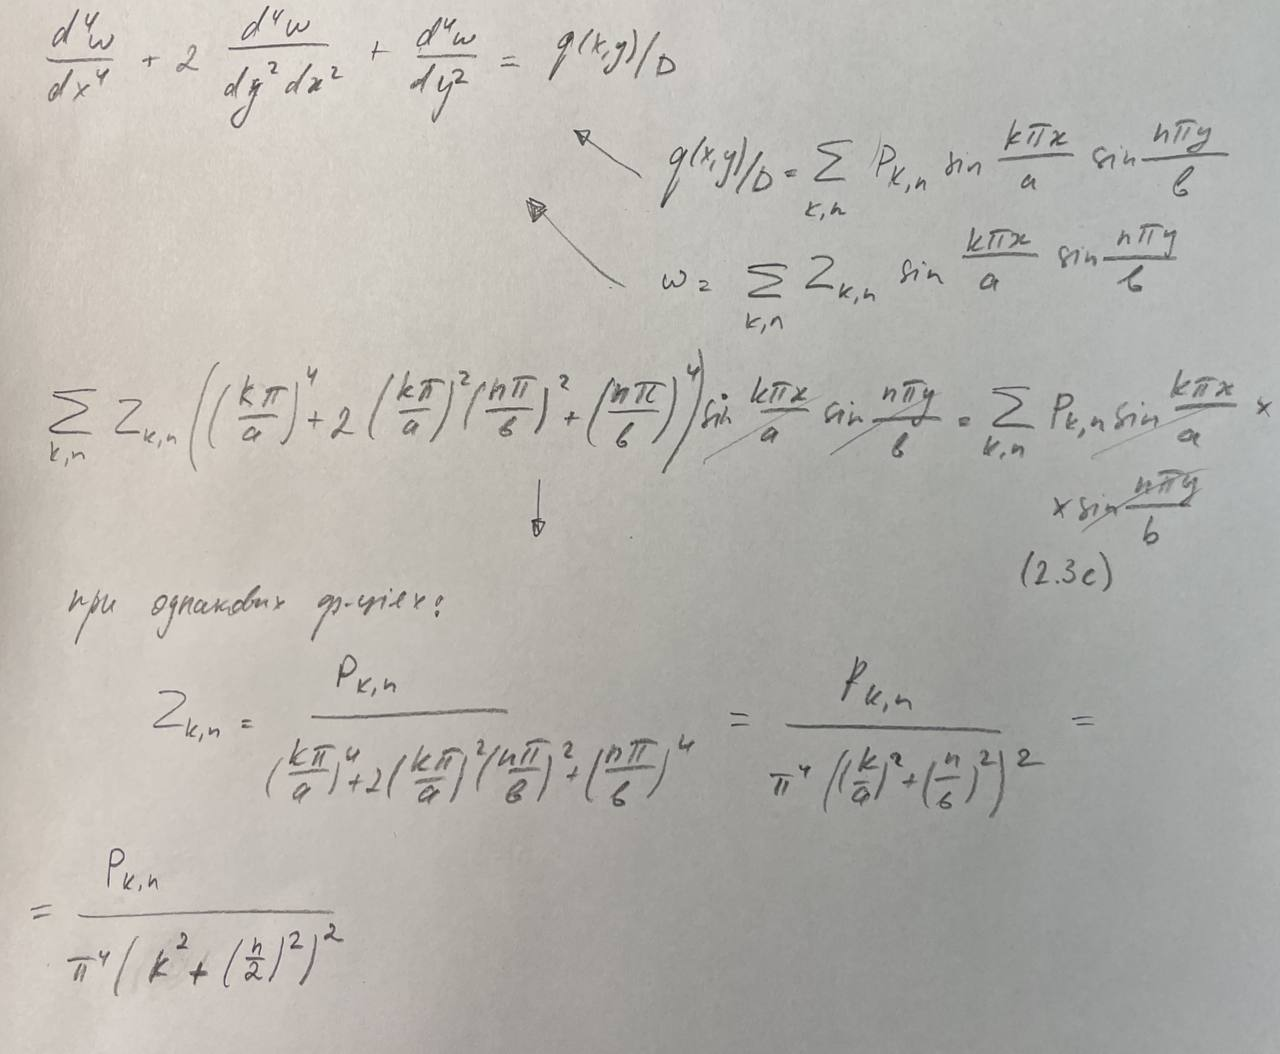 d⁴w/dx⁴ + 2 d⁴w/dy²dx² + d⁴w/dy² = q(x,y)/D
q(x,y)/D = Σ_{k,n} P_{k,n} sin kπx/a sin nπy/b
w = Σ_{k,n} Z_{k,n} sin kπx/a sin nπy/b
Σ_{k,n} Z_{k,n} ((kπ/a)⁴ + 2(kπ/a)²(nπ/b)² + (nπ/b)⁴) sin kπx/a sin nπy/b = Σ_{k,n} P_{k,n} sin kπx/a ×
× sin nπy/b
(2.3c)
при однакових ф-ціях:
Z_{k,n} = P_{k,n} / ((kπ/a)⁴ + 2(kπ/a)²(nπ/b)² + (nπ/b)⁴) = P_{k,n} / (π⁴((k/a)² + (n/b)²)²) =
= P_{k,n} / (π⁴(k² + (n/2)²)²)